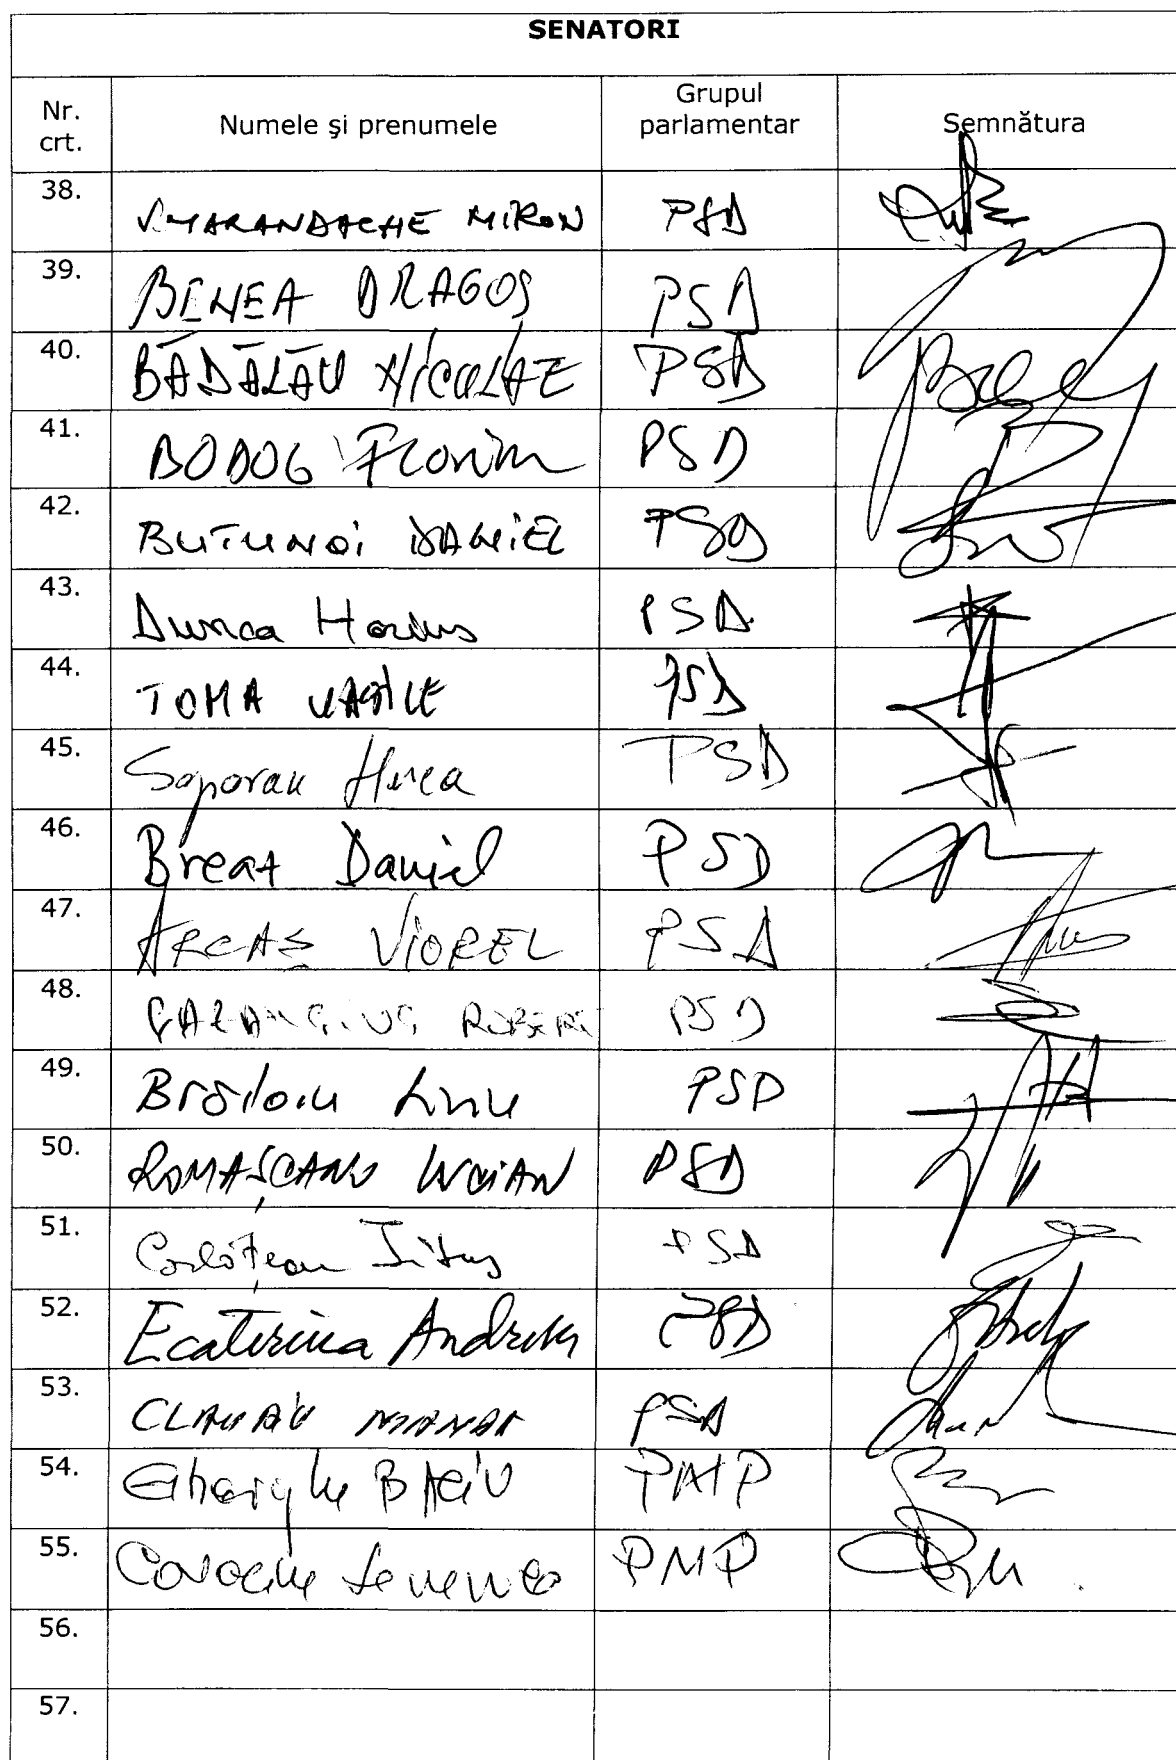 SENATORI
Nr. crt. Numele şi prenumele Grupul parlamentar Semnătura
38. SMARANDACHE MIRON PSD
39. BENEA DRAGOŞ PSD
40. BĂDĂLĂU NICOLAE PSD
41. BODOG Florin PSD
42. BUTUNOI DANIEL PSD
43. Dunca Marius PSD
44. TOMA VASILE PSD
45. Soporan PSD
46. Breaz Daniel PSD
47. ARCAŞ VIOREL PSD
48. CAZANCIUC ROBERT PSD
49. Brăiloiu Liviu PSD
50. ROMAŞCANU LUCIAN PSD
51. Corlăţean Titus PSD
52. Ecaterina Andronescu PSD
53. CLAUDIU MANDA PSD
54. Gheorghe BACIU PMP
55. PMP
56.
57.